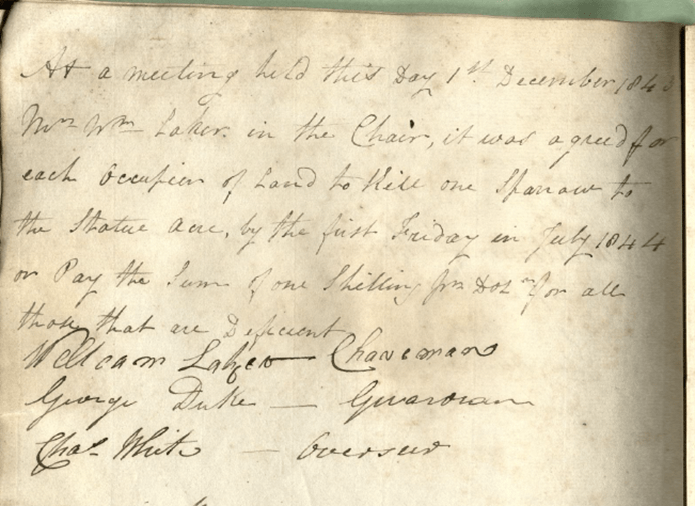 At a meeting held this Day 1st December 1843
Mr Wm Laker in the Chair, it was agreed for
each Occupier of Land to Kill one Sparrow to
the Statue Acre, by the first Friday in July 1844
or Pay the Sum of one Shilling Pr Dozn for all
those that are Deficient
William Laker Chareman
George Duke — Guardian
Chas White — Overseer